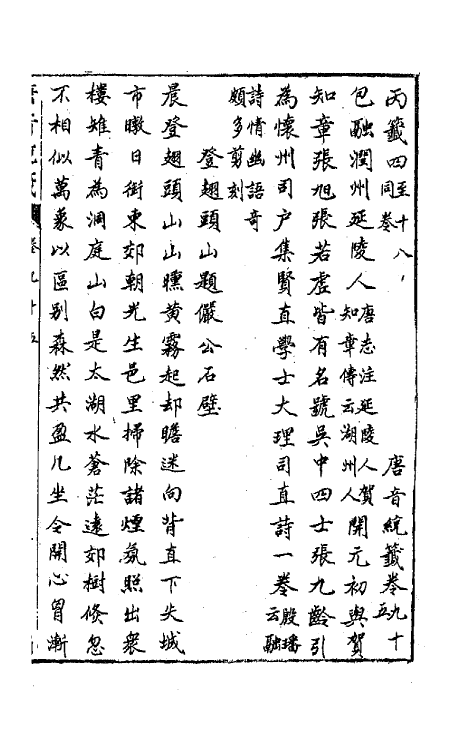 丙籤四至十八同卷 唐音統籤卷九十五
包融潤州延陵人唐志注延陵人賀知章傳云湖州人開元初與賀
知章張旭張若虛皆有名號吳中四士張九齡引
為懷州司户集賢直學士大理司直詩一卷殷璠云融
詩情幽語奇頗多剪刻
登翅頭山題儼公石壁
晨登翅頭山山曛黄霧起却瞻迷向背直下失城
市暾日銜東郊朝光生邑里掃除諸煙氛照出衆
樓雉青為洞庭山白是太湖水蒼茫遠郊樹倏忽
不相似萬象以區别森然共盈几坐令開心胷漸
唐音統籤 卷九十五